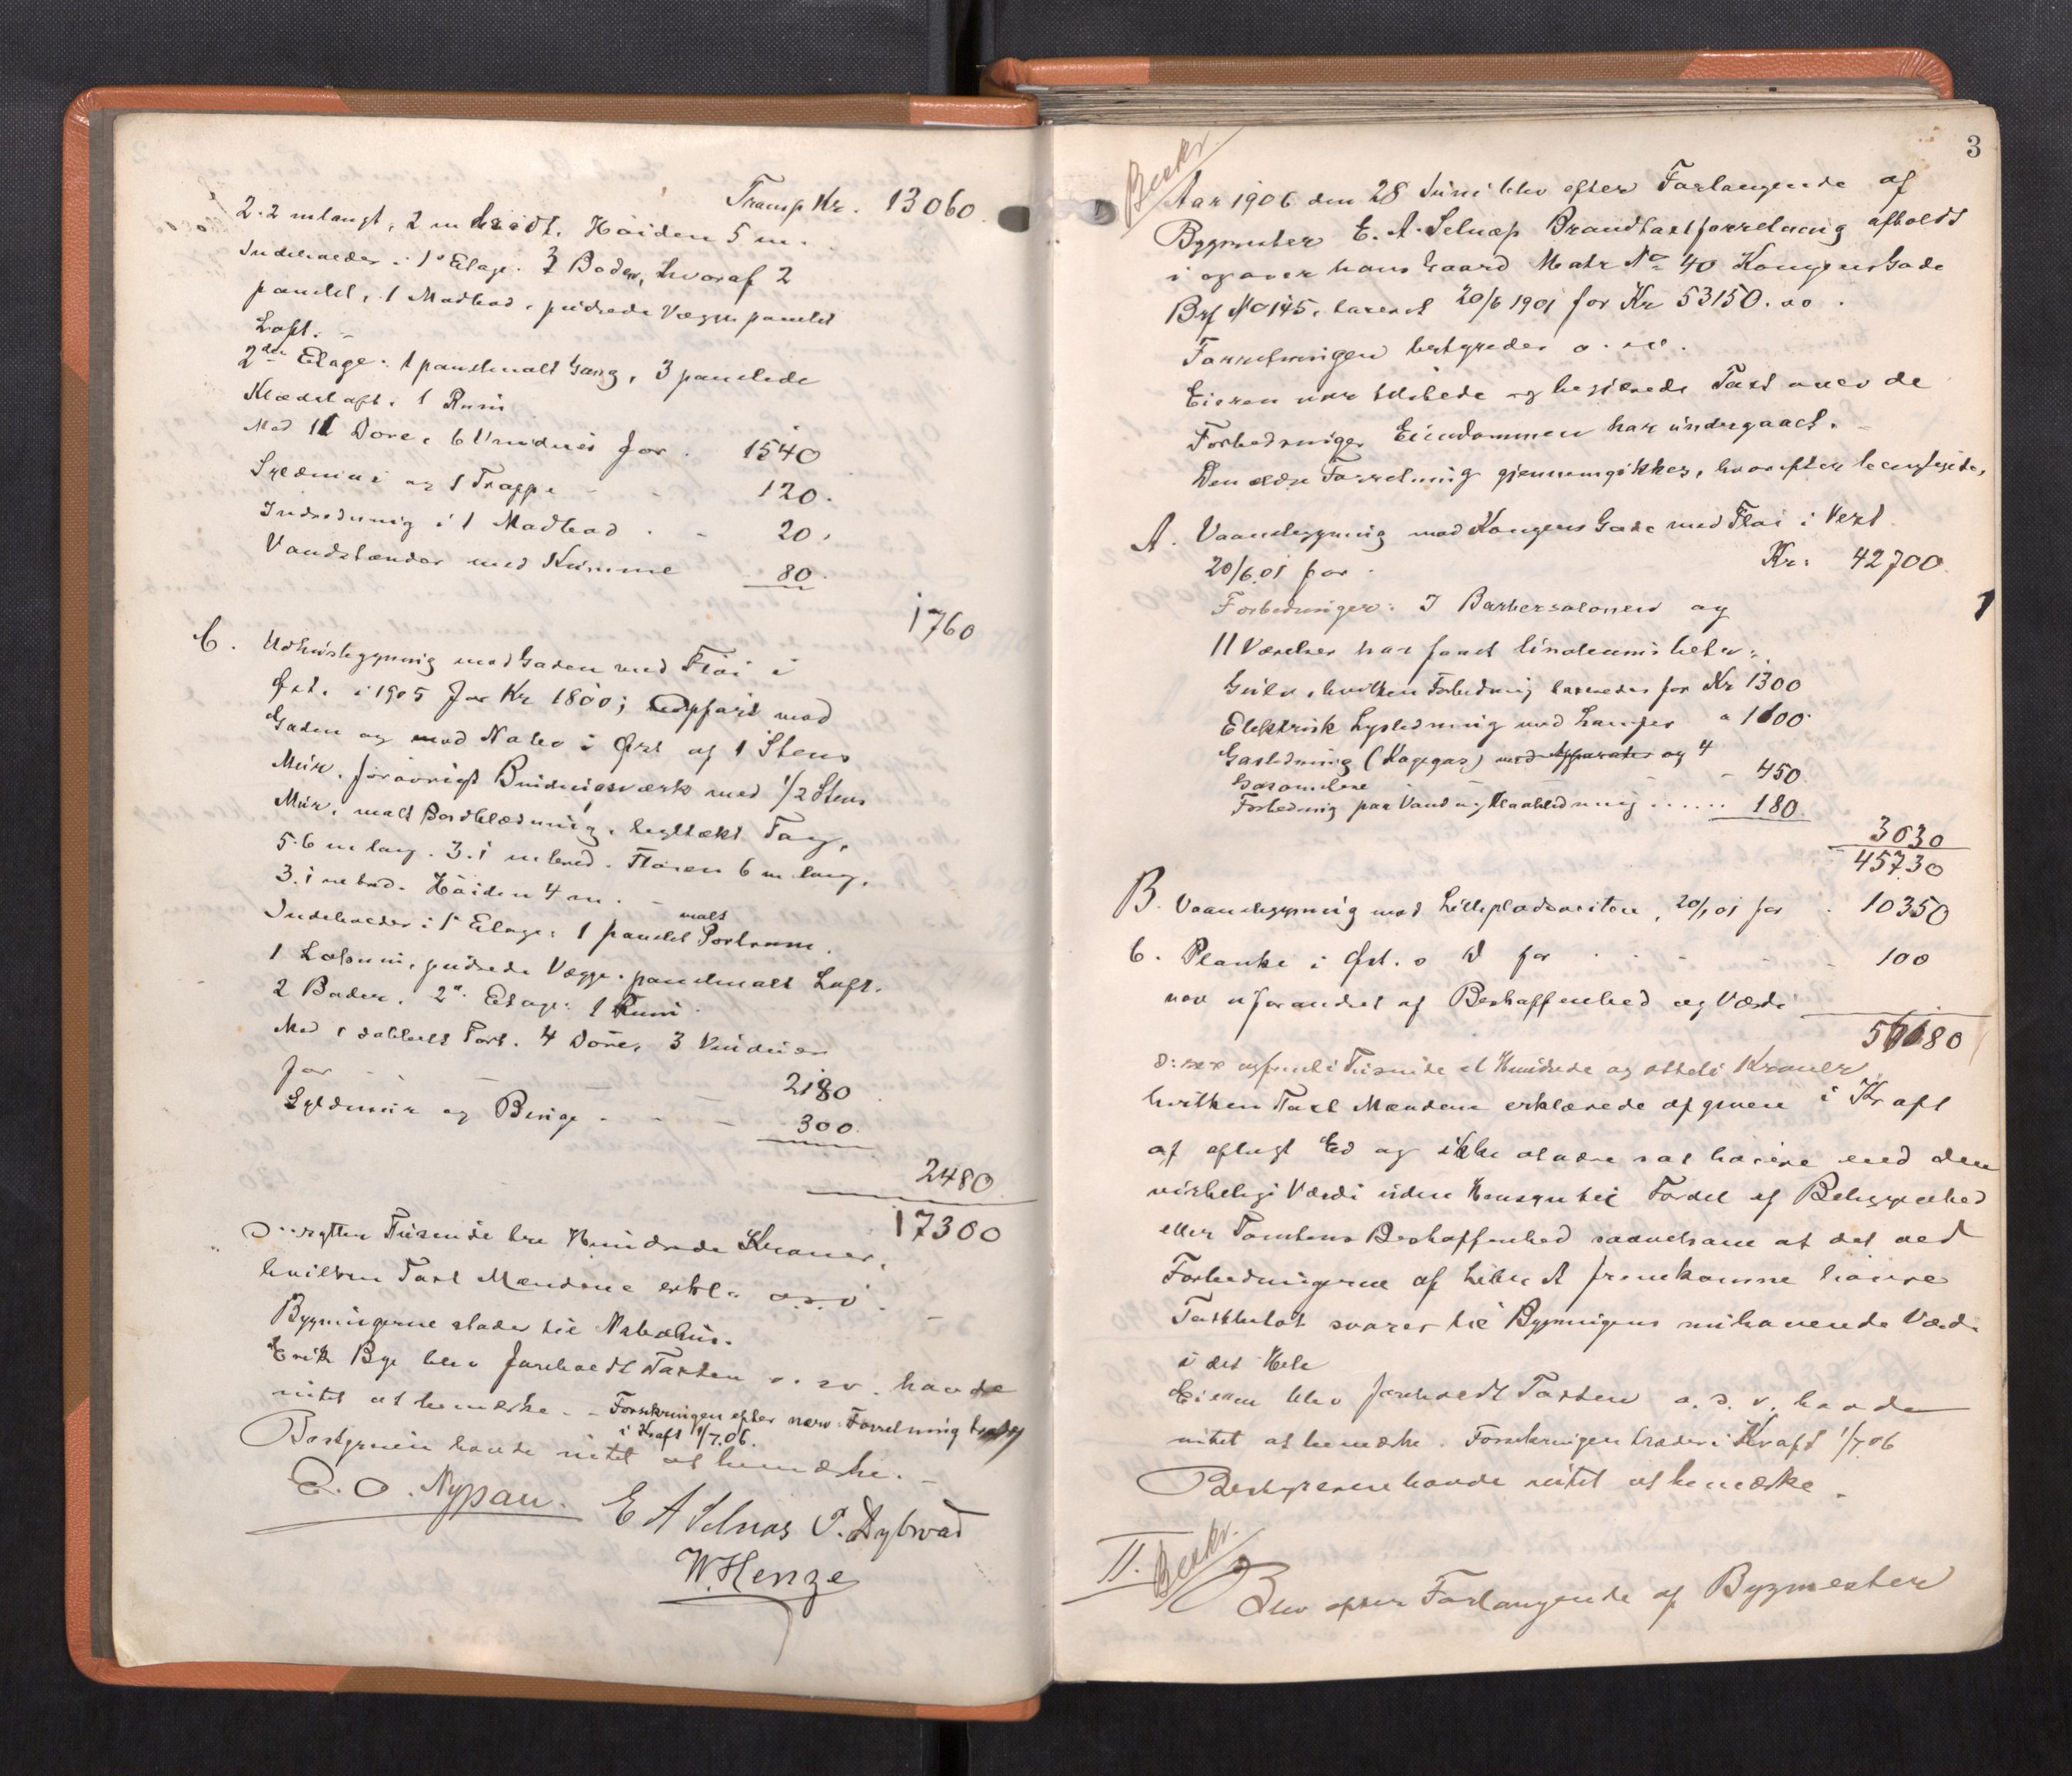 Transp Kr. 13060.
2.2 m langt, 2 m bredt. Höiden 5 m.
Indeholder i 1ste Etage: 3 Boder, hvoraf 2
panelet, 1 Madbod, pudsede Vægge panelet
Loft. -
2den Etage: 1 panelmalt Gang, 3 panelede
Klædeloft, 1 Rum
Med 11 Döre, 6 Vinduer for . 1540
Skedrum og 1 Trappe - - 120.
Indredning i 1 Madbod . - 20.
Vandstænder med Kumme 80.
1760
C. Udhusbygning mod Gaden med Flöi i
Öst. i 1905 for Kr 1800; Opfört mod
Gaden og mod Nabo i Öst af 1 Stens
Mur. forövrigt Bindingsværk med 1/2 Stens
Mur, malt Bordklædning, tegltækt Tag,
5.6 m lang. 3.1 m bred. Flöien 6 m lang,
3.1 m bred. Höiden 4 m. -
Indeholder i 1ste Etage: 1 panelet malt Portrum.
1 Lokum, pudsede Vægge. panelmalt Loft.
2 Boder. 2n. Etage: 1 Rum.
Med 1 dobbelt Port. 4 Döre, 3 Vinduer
for - - - 2180
og Binge . - - 300.
2480
17300
D: sytten Tusende tre Hundrede Kroner,
hvilken Taxt Mændene erkl. o.s.v. -
Bygningerne stöder til Nabohus.
Erik Bye blev foreholdt Taxten o. sv. havde
intet at bemerke. - Forsikringen efter nærv. Forretning træder
i Kraft 1/7.06.
Bestyreren havde intet at bemærke. -
E. O. Nypan. E A Selnæs P. Dybwad
W. Henze
3
Beskr.
Aar 1906 den 28 Juni blev efter Forlangende af
Bygmester E. A. Selnæs Brandtaxtforretning afholdt
i og over hans Gaard Matr No 40 Kongens Gade
Brf No 145, taxeret 20/6 1901 for Kr 53150.00.
Forretningen bestyredes o. sv.
Eieren var tilstede og begjærede Taxt over de
Forbedringer Eiendommen har undergaaet. -
Den ældre Forretning gjennemgikkes, hvorefter
A. Vaanebygning mod Kongens Gade med Flöi i Vest
20/6.01 for . Kr. 42700.
Forbedringer: I Barbersalonen og
11 Værelser har faaet linoleumsbelagte
Gulv, hvilken Forbedring taxeredes for Kr 1300
Elektrisk Lysledning med Lamper " 1100.
Gasledning (Kogegas) med Apparater og 4
Gasovnlene - 450.
Forbedring paa Vand og Kloakledning ...... 180.
3030
45730
B. Vaanebygning mod 20/6 01 for . 10350
C. Planke i Öst. o d for . . - - 100
var uforandret af Beskaffenhed og Værdi
56180
D: sex og femti Tusinde et Hundrede og otteti Kroner,
hvilken Taxt Mændene erklærede afgiven i Kraft
af aflagt Ed og ikke at være sat höiere end den
virkelige Værdi uden Hensyn til Fordel af Beliggenhed
eller Tomtens Beskaffenhed saavelsom at det ved
Forbedringerne af Litra A fremkomne höiere
Taxtbelöb svarer til Bygningens nuhavende Værdi
i det Hele
Eieren blev foreholdt Taxten o. s. v. havde
intet at bemærke. Forsikringen træder i Kraft 1/7 06
Bestyreren havde intet at bemærke. -
II. Beskr.
Blev efter Forlangende af Bygmester